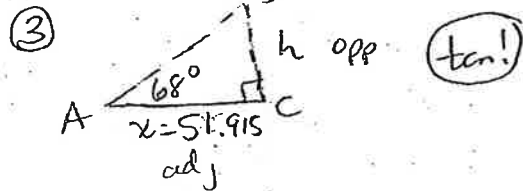 ③
h opp tan!
68°
A C
x=51.915
adj